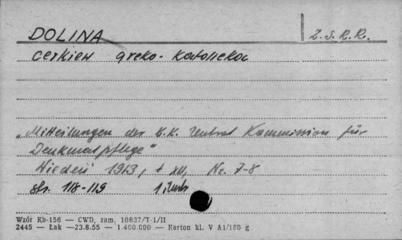 DOLINA Z.S.R.R.
cerkiew greko-katolicka
„Mitteilungen der k.k. Zentral Kommission für
Denkmalpflege"
Wiedeń 1913, t XII, Nr. 7-8
str. 118-119 1 ilustr.
Wzór Kb-156 — CWD, zam. 10837/T-1/II
2445 — Łak — 23.8.55 — 1.400.000 — Karton kl. V A1/180 g